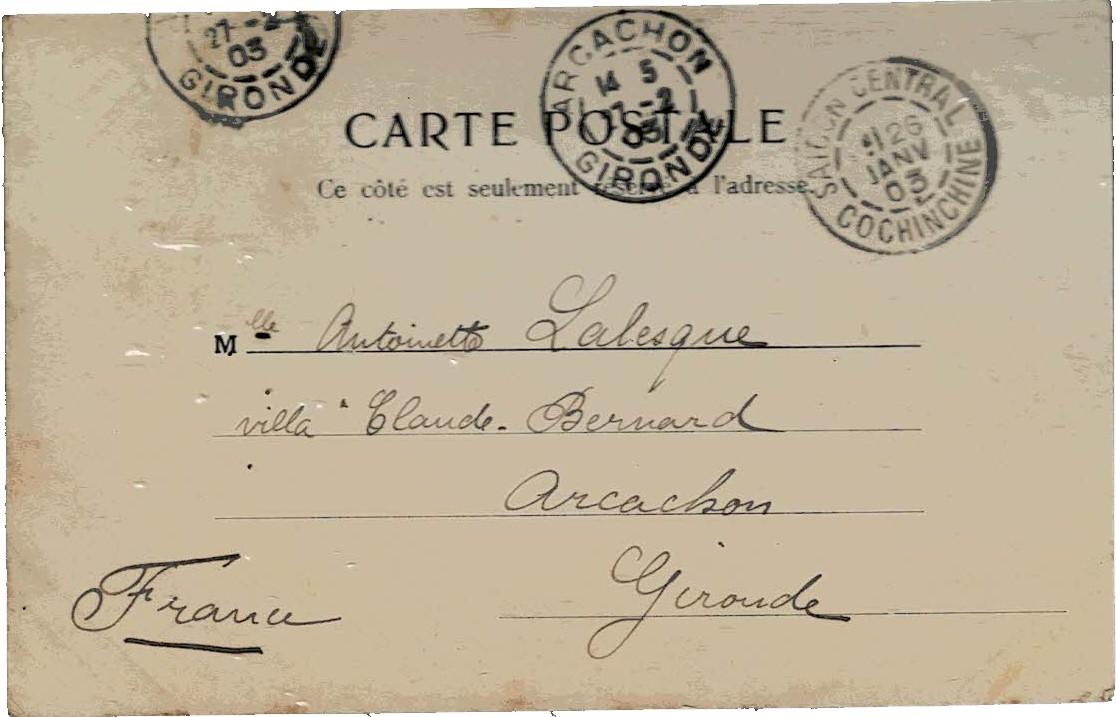 27-2
03
GIRONDE
ARCACHON
14 5
27-2
03
GIRONDE
SAIGON CENTRAL
26
JANV
03
COCHINCHINE
CARTE POSTALE
Ce côté est seulement réservé à l'adresse.
Mlle Antoinette Lalesque
villa "Claude-Bernard
Arcachon
Gironde
France